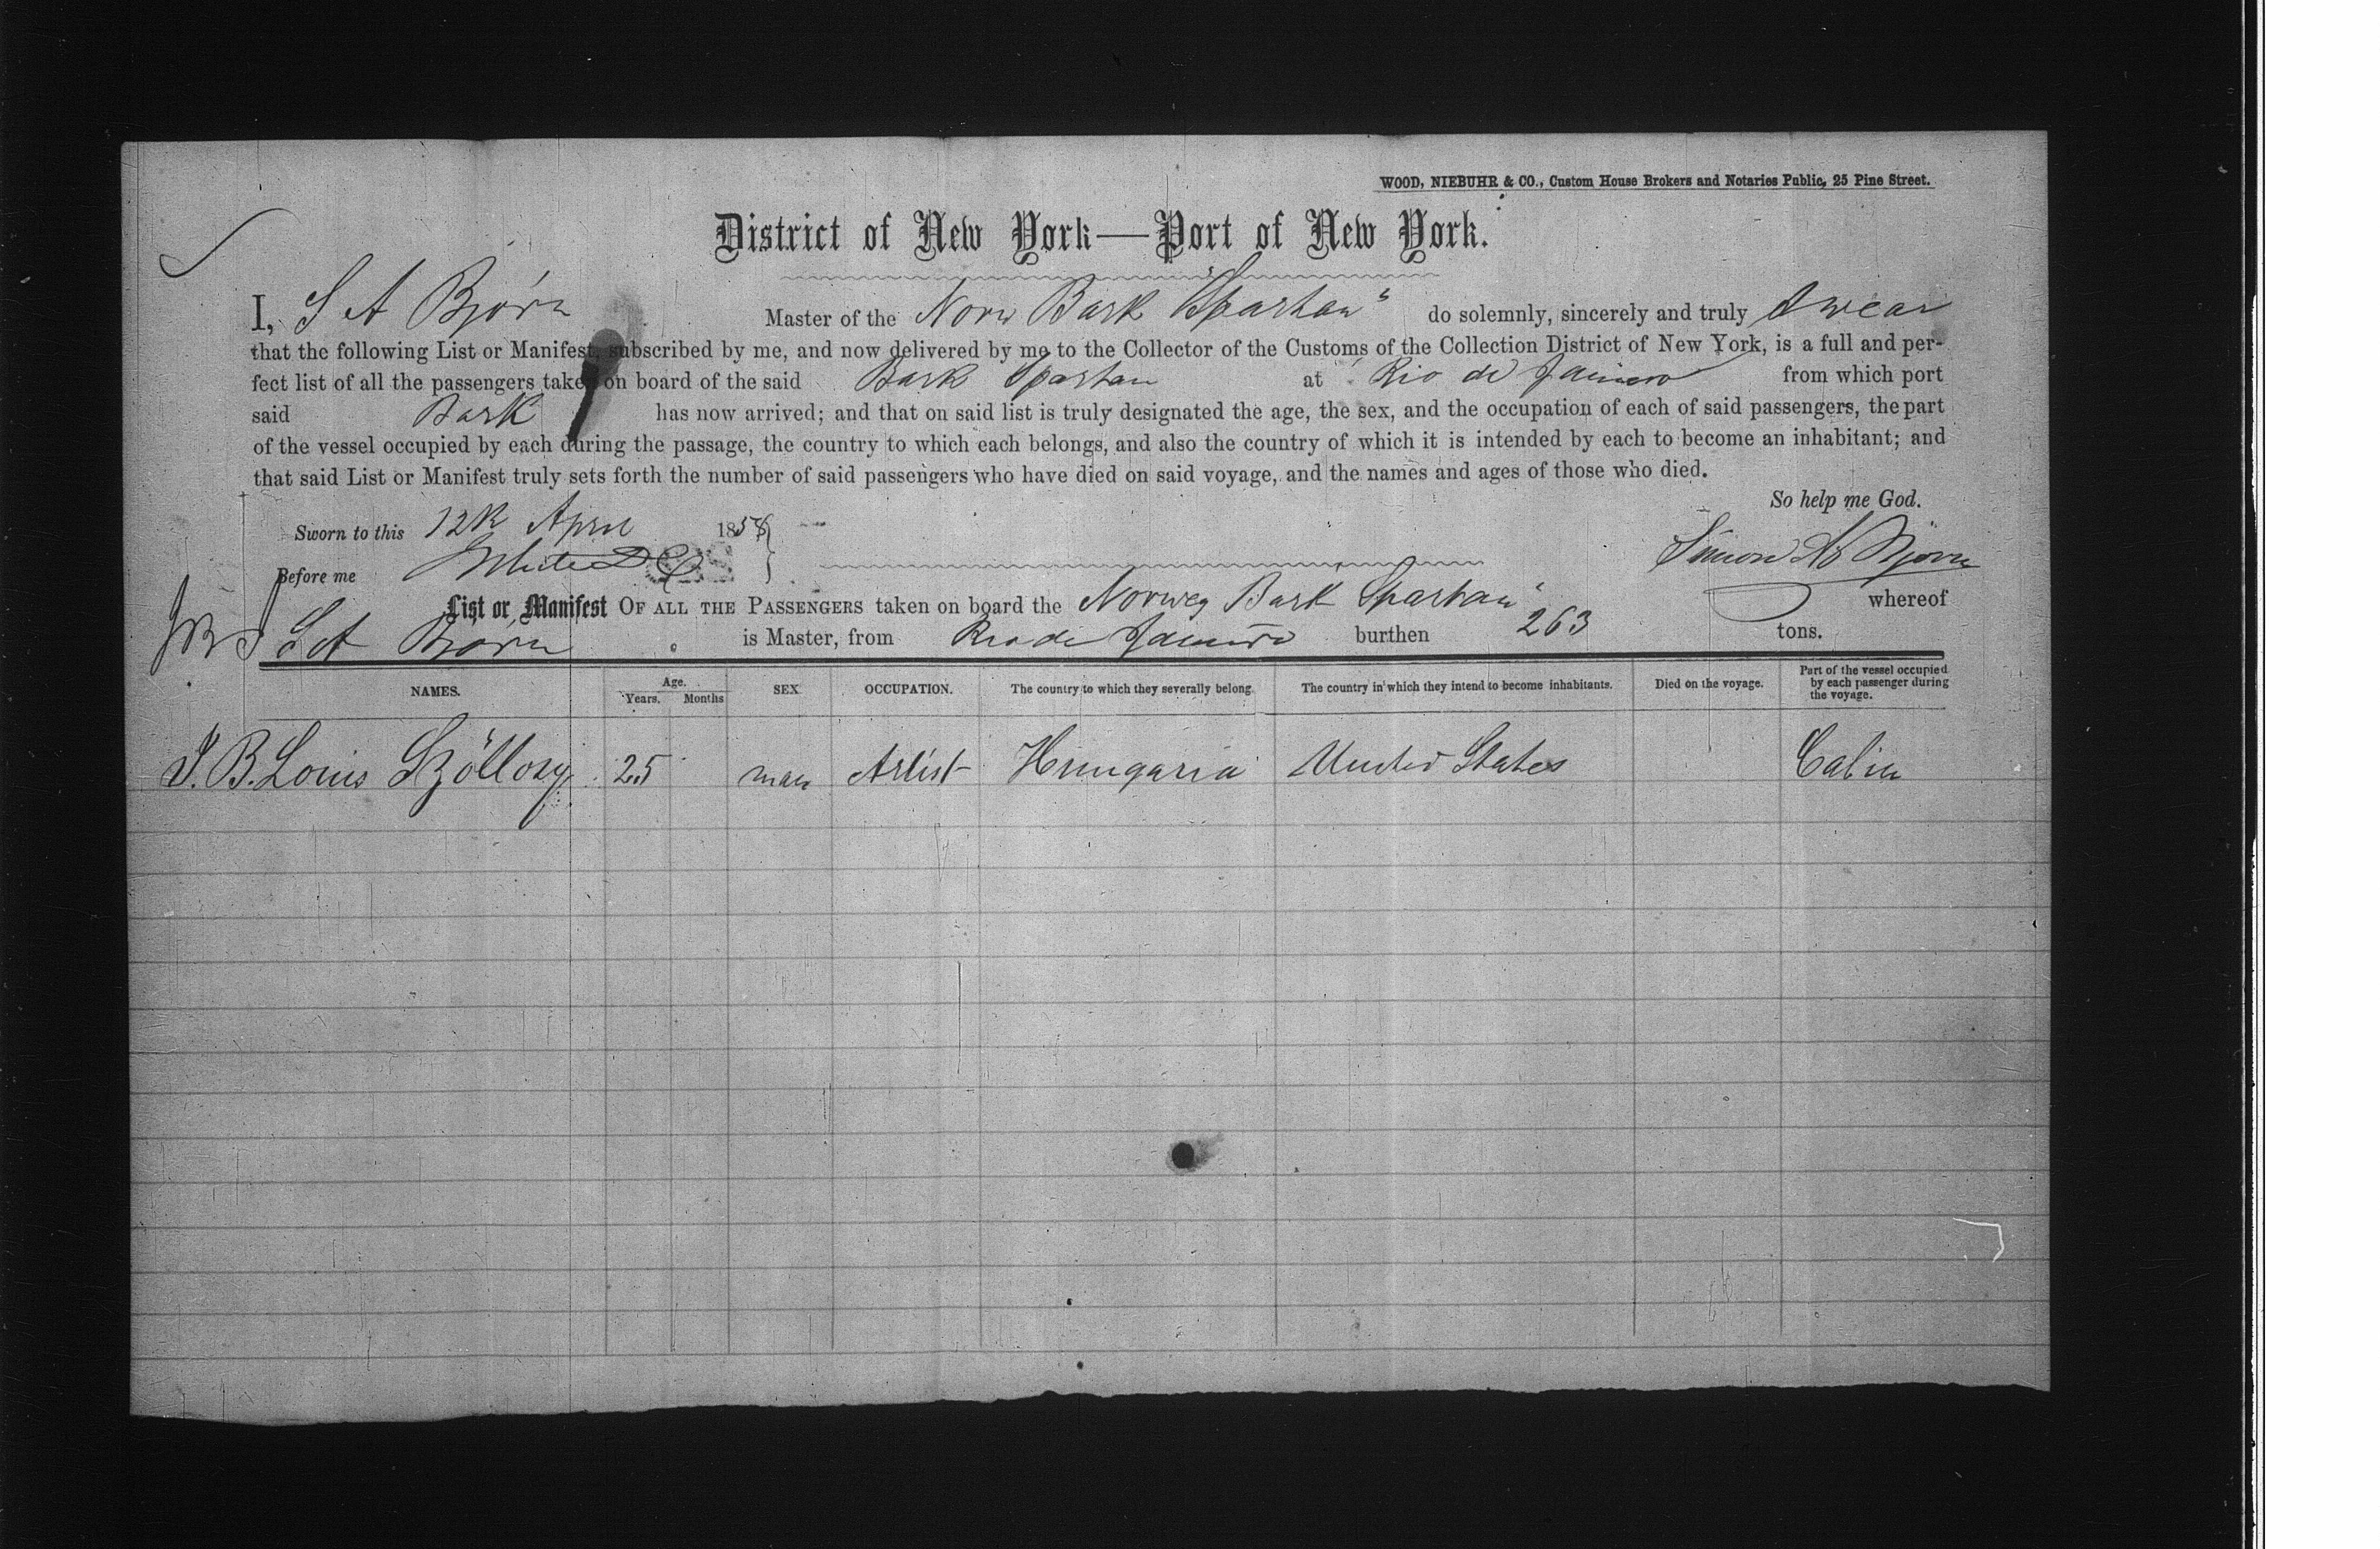 WOOD, NIEBUHR & CO., Custom House Brokers and Notaries Public, 25 Pine Street.
District of New York—Port of New York.
I, S A Bjørn Master of the Norw Bark "Spartan" do solemnly, sincerely and truly Swear
that the following List or Manifest, subscribed by me, and now delivered by me to the Collector of the Customs of the Collection District of New York, is a full and per-
fect list of all the passengers taken on board of the said Bark Spartan at Rio de Janeiro from which port
said Bark has now arrived; and that on said list is truly designated the age, the sex, and the occupation of each of said passengers, the part
of the vessel occupied by each during the passage, the country to which each belongs, and also the country of which it is intended by each to become an inhabitant; and
that said List or Manifest truly sets forth the number of said passengers who have died on said voyage, and the names and ages of those who died.
So help me God.
Sworn to this 12th April 1858
Before me
Simon A Bjørn
List or Manifest OF ALL THE PASSENGERS taken on board the Norweg Bark Spartan" whereof
S A Bjørn is Master, from Rio de Janeiro burthen 263 tons.
NAMES. Age. Years. Months SEX OCCUPATION. The country to which they severally belong. The country in which they intend to become inhabitants. Died on the voyage. Part of the vessel occupied by each passenger during the voyage.
J. B. Louis Szöllosy 25 man Artist Hungaria United States Cabin